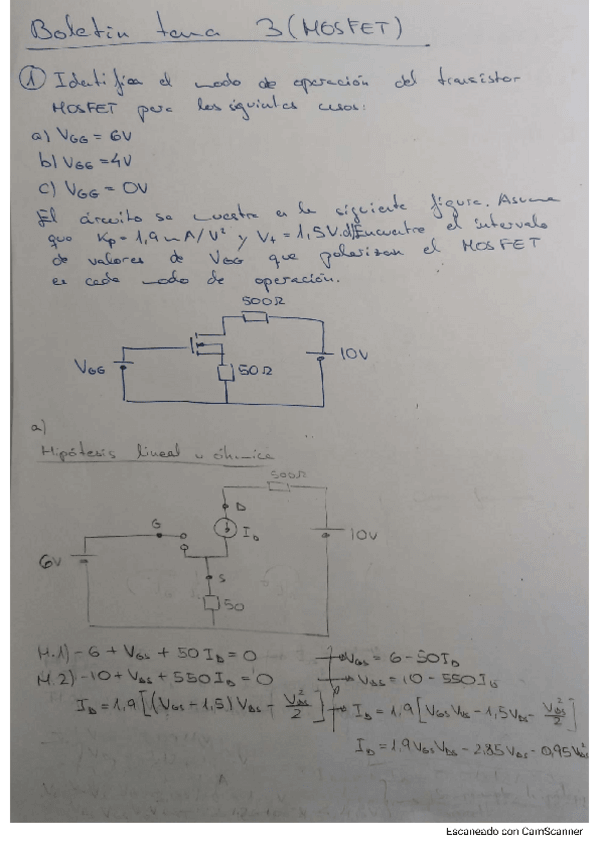 Boletín tema 3 (MOSFET)
① Identifica el modo de operación del transistor
MOSFET para los siguientes casos:
a) VGG = 6V
b) VGG = 4V
c) VGG = 0V
El circuito se muestra en la siguiente figura. Asuma
que Kp = 1,9 mA/V² y Vt = 1,5V. d) Encuentre el intervalo
de valores de VGG que polarizan el MOSFET
en cada modo de operación.
500Ω
VGG
50Ω
10V
a)
Hipótesis lineal u óhmica
500Ω
D
G
ID
10V
6V
S
50
M.1) -6 + VGS + 50 ID = 0 → VGS = 6 - 50 ID
M.2) -10 + VDS + 550 ID = 0 → VDS = 10 - 550 ID
ID = 1,9 [(VGS - 1,5) VDS - VDS²/2] → ID = 1,9 [VGS VDS - 1,5 VDS - VDS²/2]
ID = 1,9 VGS VDS - 2,85 VDS - 0,95 VDS²
Escaneado con CamScanner